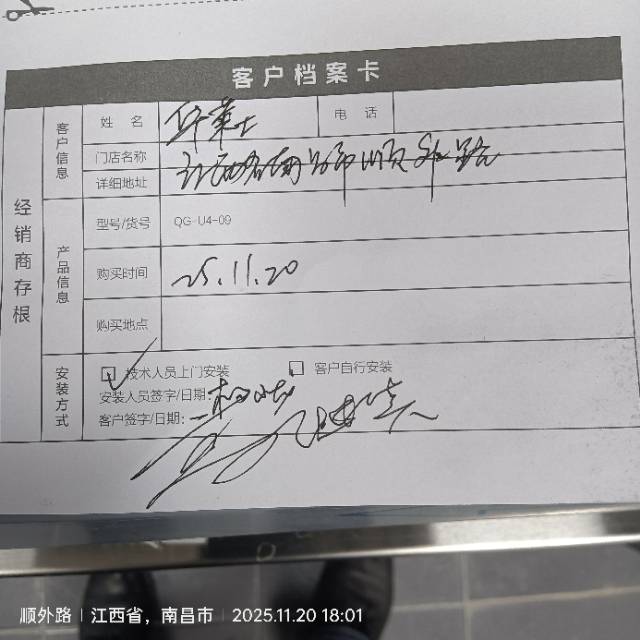 客户档案卡
经销商存根
客户信息
姓 名
电 话
门店名称
江西省南昌市顺外路
详细地址
产品信息
型号/货号 QG-U4-09
购买时间 25.11.20
购买地点
安装方式
技术人员上门安装 客户自行安装
安装人员签字/日期:
客户签字/日期:
顺外路 | 江西省，南昌市 | 2025.11.20 18:01